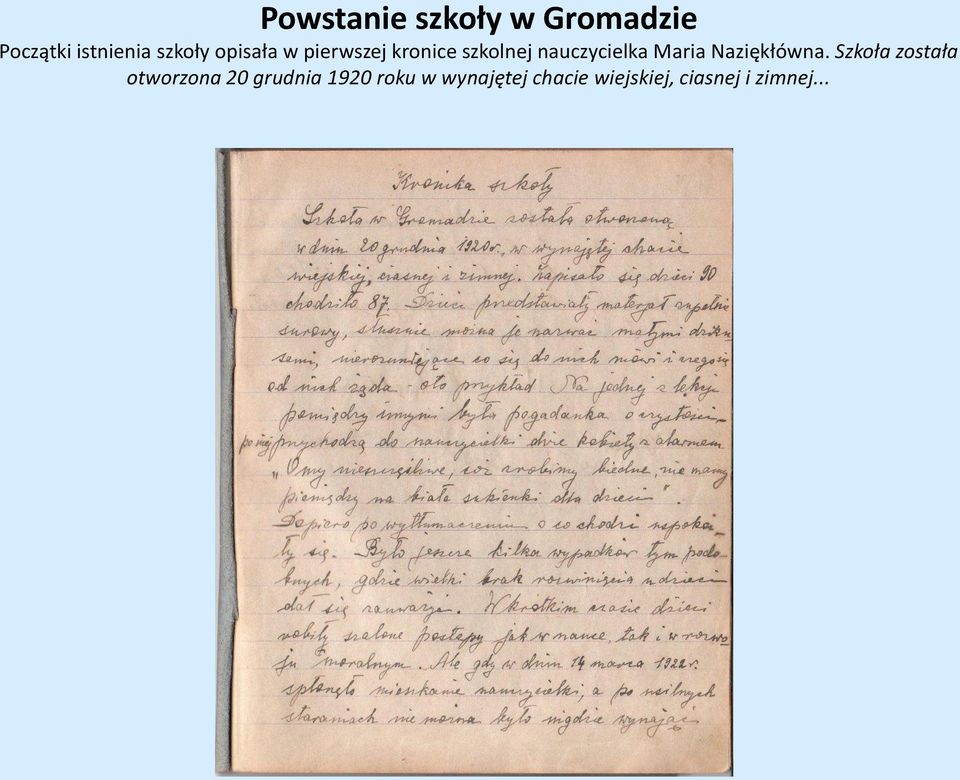 Powstanie szkoły w Gromadzie
Początki istnienia szkoły opisała w pierwszej kronice szkolnej nauczycielka Maria Naziękłówna. Szkoła została
otworzona 20 grudnia 1920 roku w wynajętej chacie wiejskiej, ciasnej i zimnej...
Kronika szkoły
Szkoła w Gromadzie została otworzoną
w dniu 20 grudnia 1920 r., w wynajętej chacie
wiejskiej, ciasnej i zimnej. Zapisało się dzieci 90
chodziło 87. Dzieci przedstawiały materjał zupełnie
surowy, słusznie można je nazwać małymi dziku-
sami, nierozumiejące co się do nich mówi i czego się
od nich żąda - oto przykład Na jednej z lekcji
pomiędzy innymi była pogadanka o czystości -
po niej przychodzą do nauczycielki dwie kobiety z alarmem
"O my nieszczęśliwe, cóż zrobimy biedne, nie mamy
pieniędzy na białe sukienki dla dzieci".
Dopiero po wytłumaczeniu o co chodzi uspokoi-
ły się. Było jeszcze kilka wypadków tym podo-
bnych, gdzie wielki brak rozwinięcia u dzieci
dał się zauważyć. W krótkim czasie dzieci
robiły szalone postępy jak w nauce, tak i w rozwo-
ju moralnym. Ale gdy w dniu 14 marca 1922 r.
spłonęło mieszkanie nauczycielki, a po usilnych
staraniach nie można było nigdzie wynająć